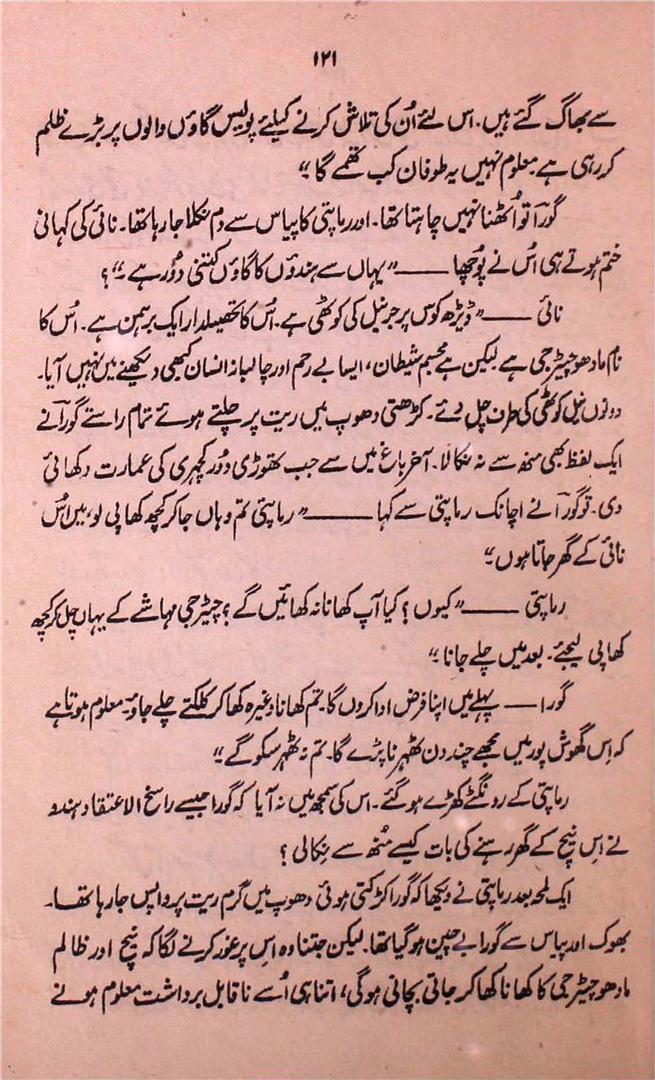 ۱۲۱
سے بھاگ گئے ہیں۔ اس لئے اُن کی تلاش کرنے کیلئے پولیس گاؤں والوں پر بڑے ظلم
کر رہی ہے۔ معلوم نہیں یہ طوفان کب تھمے گا ۔"
گورآ تو اُٹھنا نہیں چاہتا تھا۔ اور رماپتی کا پیاس سے دم نکلا جا رہا تھا۔ نائی کی کہانی
ختم ہوتے ہی اُس نے پُوچھا —— "یہاں سے ہندوؤں کا گاؤں کتنی دُور ہے ۔"؟
نائی —— "ڈیڑھ کوس پر جرنیل کی کوٹھی ہے۔ اُس کا تحصیلدار ایک برہمن ہے۔ اُس کا
نام مادھو چیٹرجی ہے لیکن ہے مجسم شیطان، ایسا بے رحم اور چالبانہ انسان کبھی دیکھنے میں نہیں آیا۔
دونوں نیل کوٹھی کی طرف چل دئے۔ کڑھتی دھوپ میں ریت پر چلتے ہوئے تمام راستے گورآ نے
ایک لفظ بھی منھ سے نہ نکالا۔ آخر باغ میں سے جب تھوڑی دُور کچہری کی عمارت دکھائی
دی۔ تو گورآ نے اچانک رماپتی سے کہا —— "رماپتی تم وہاں جا کر کچھ کھا پی لو، میں اُس
نائی کے گھر جاتا ہوں ۔"
رماپتی —— "کیوں؟ کیا آپ کھانا نہ کھائیں گے؟ چیٹرجی مہاشے کے یہاں چل کر کچھ
کھا پی لیجئے۔ بعد میں چلے جانا ۔"
گورا —— پہلے میں اپنا فرض ادا کروں گا۔ تم کھانا وغیرہ کھا کر کلکتے چلے جاؤ۔ معلوم ہوتا ہے
کہ اِس گھوش پور میں مجھے چند دن ٹھہرنا پڑے گا۔ تم نہ ٹھہر سکو گے ۔"
رماپتی کے رونگٹے کھڑے ہو گئے۔ اس کی سمجھ میں نہ آیا کہ گورا جیسے راسخ الاعتقاد ہندو
نے اِس نیچ کے گھر رہنے کی بات کیسے مُنھ سے نِکالی؟
ایک لمحہ بعد رماپتی نے دیکھا کہ گورا کڑکتی ہوئی دھوپ میں گرم ریت پر واپس جا رہا تھا۔
بھوک اور پیاس سے گورا بے چین ہو گیا تھا۔ لیکن جتنا وہ اِس پر غور کرنے لگا کہ نیچ اور ظالم
مادھو چیٹرجی کا کھانا کھا کر جاتی بچانی ہوگی، اتنا ہی اُسے ناقابلِ برداشت معلوم ہونے